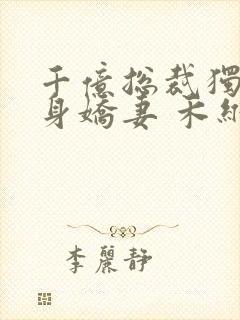 千億总裁獨
身嬌妻 木納
李麗靜